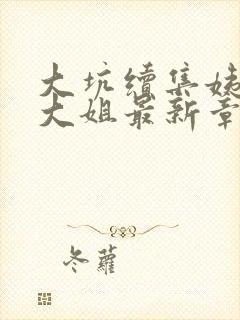 大坑續集姊
大姐最新章
冬蘿